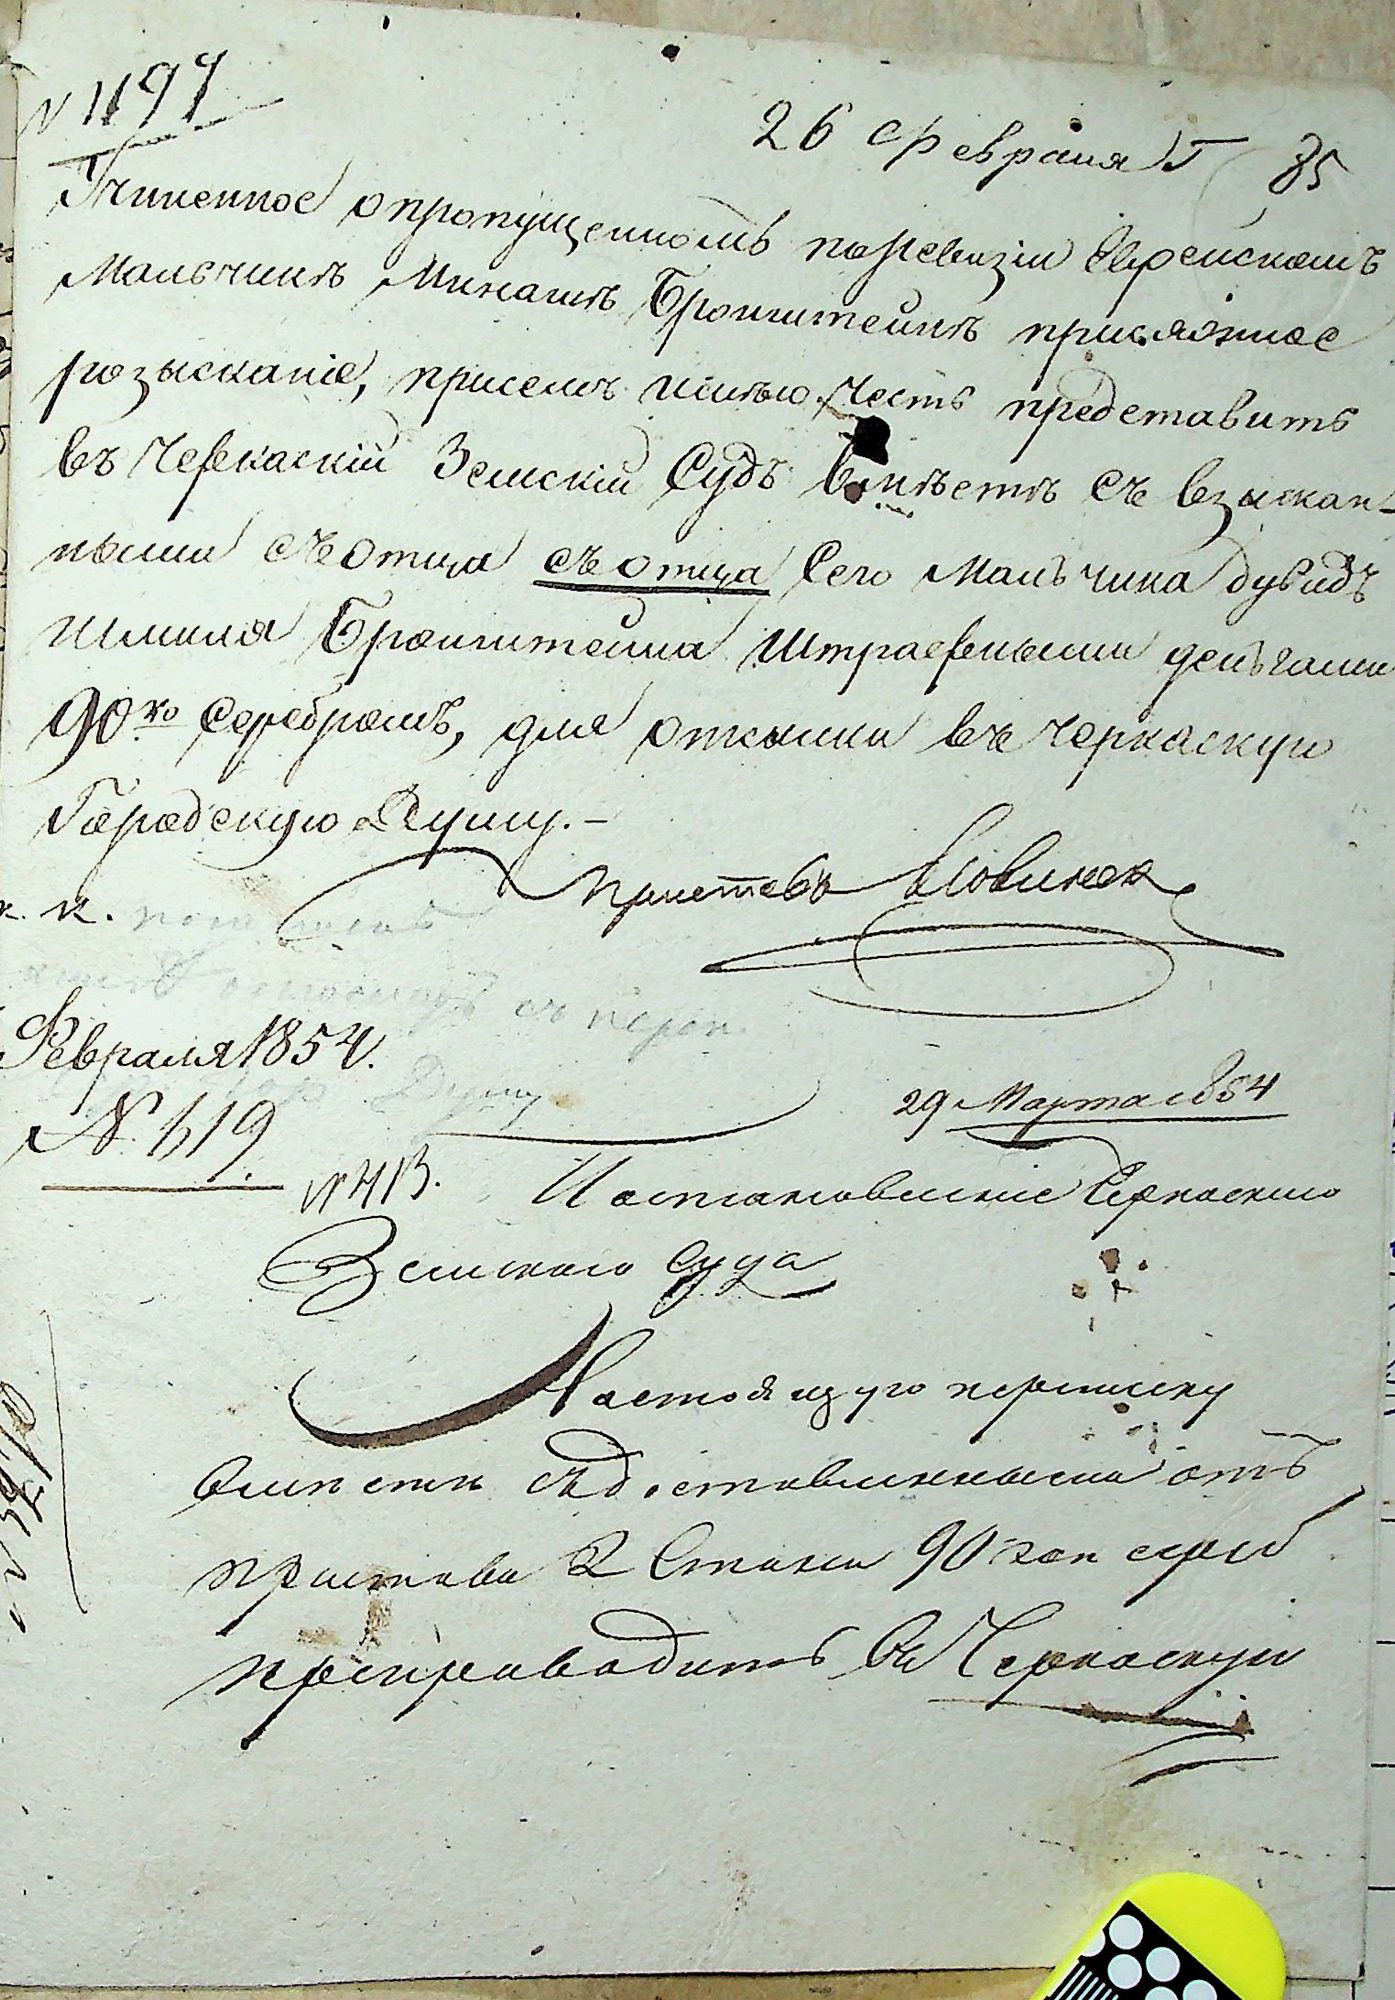 N 1197
26 февраля
85
Учиненное о пропущенномъ по ревизіи Еврейскомъ
Мальчикѣ Бронштейнѣ присяжное
розысканіе, при семъ имѣю честь представить
въ Черкаскій Земскій Судъ вмѣстѣ съ взыскан-
ными съ отца съ отца Сего Мальчика Дувидъ
Шмиля Бронштейна Штрафными деньгами
90 ко серебромъ, для отсылки въ Черкаскую
Городскую Думу.-
Приставъ
к.
Февраля 1854.
N. 619
29 Марта 1854
N 413. Постановленіе Черкаского
Земского Суда
Настоящую переписку
вместе съ доставленными отъ
пристава 2 Стана 90 коп сереб
препроводить въ Черкаскую